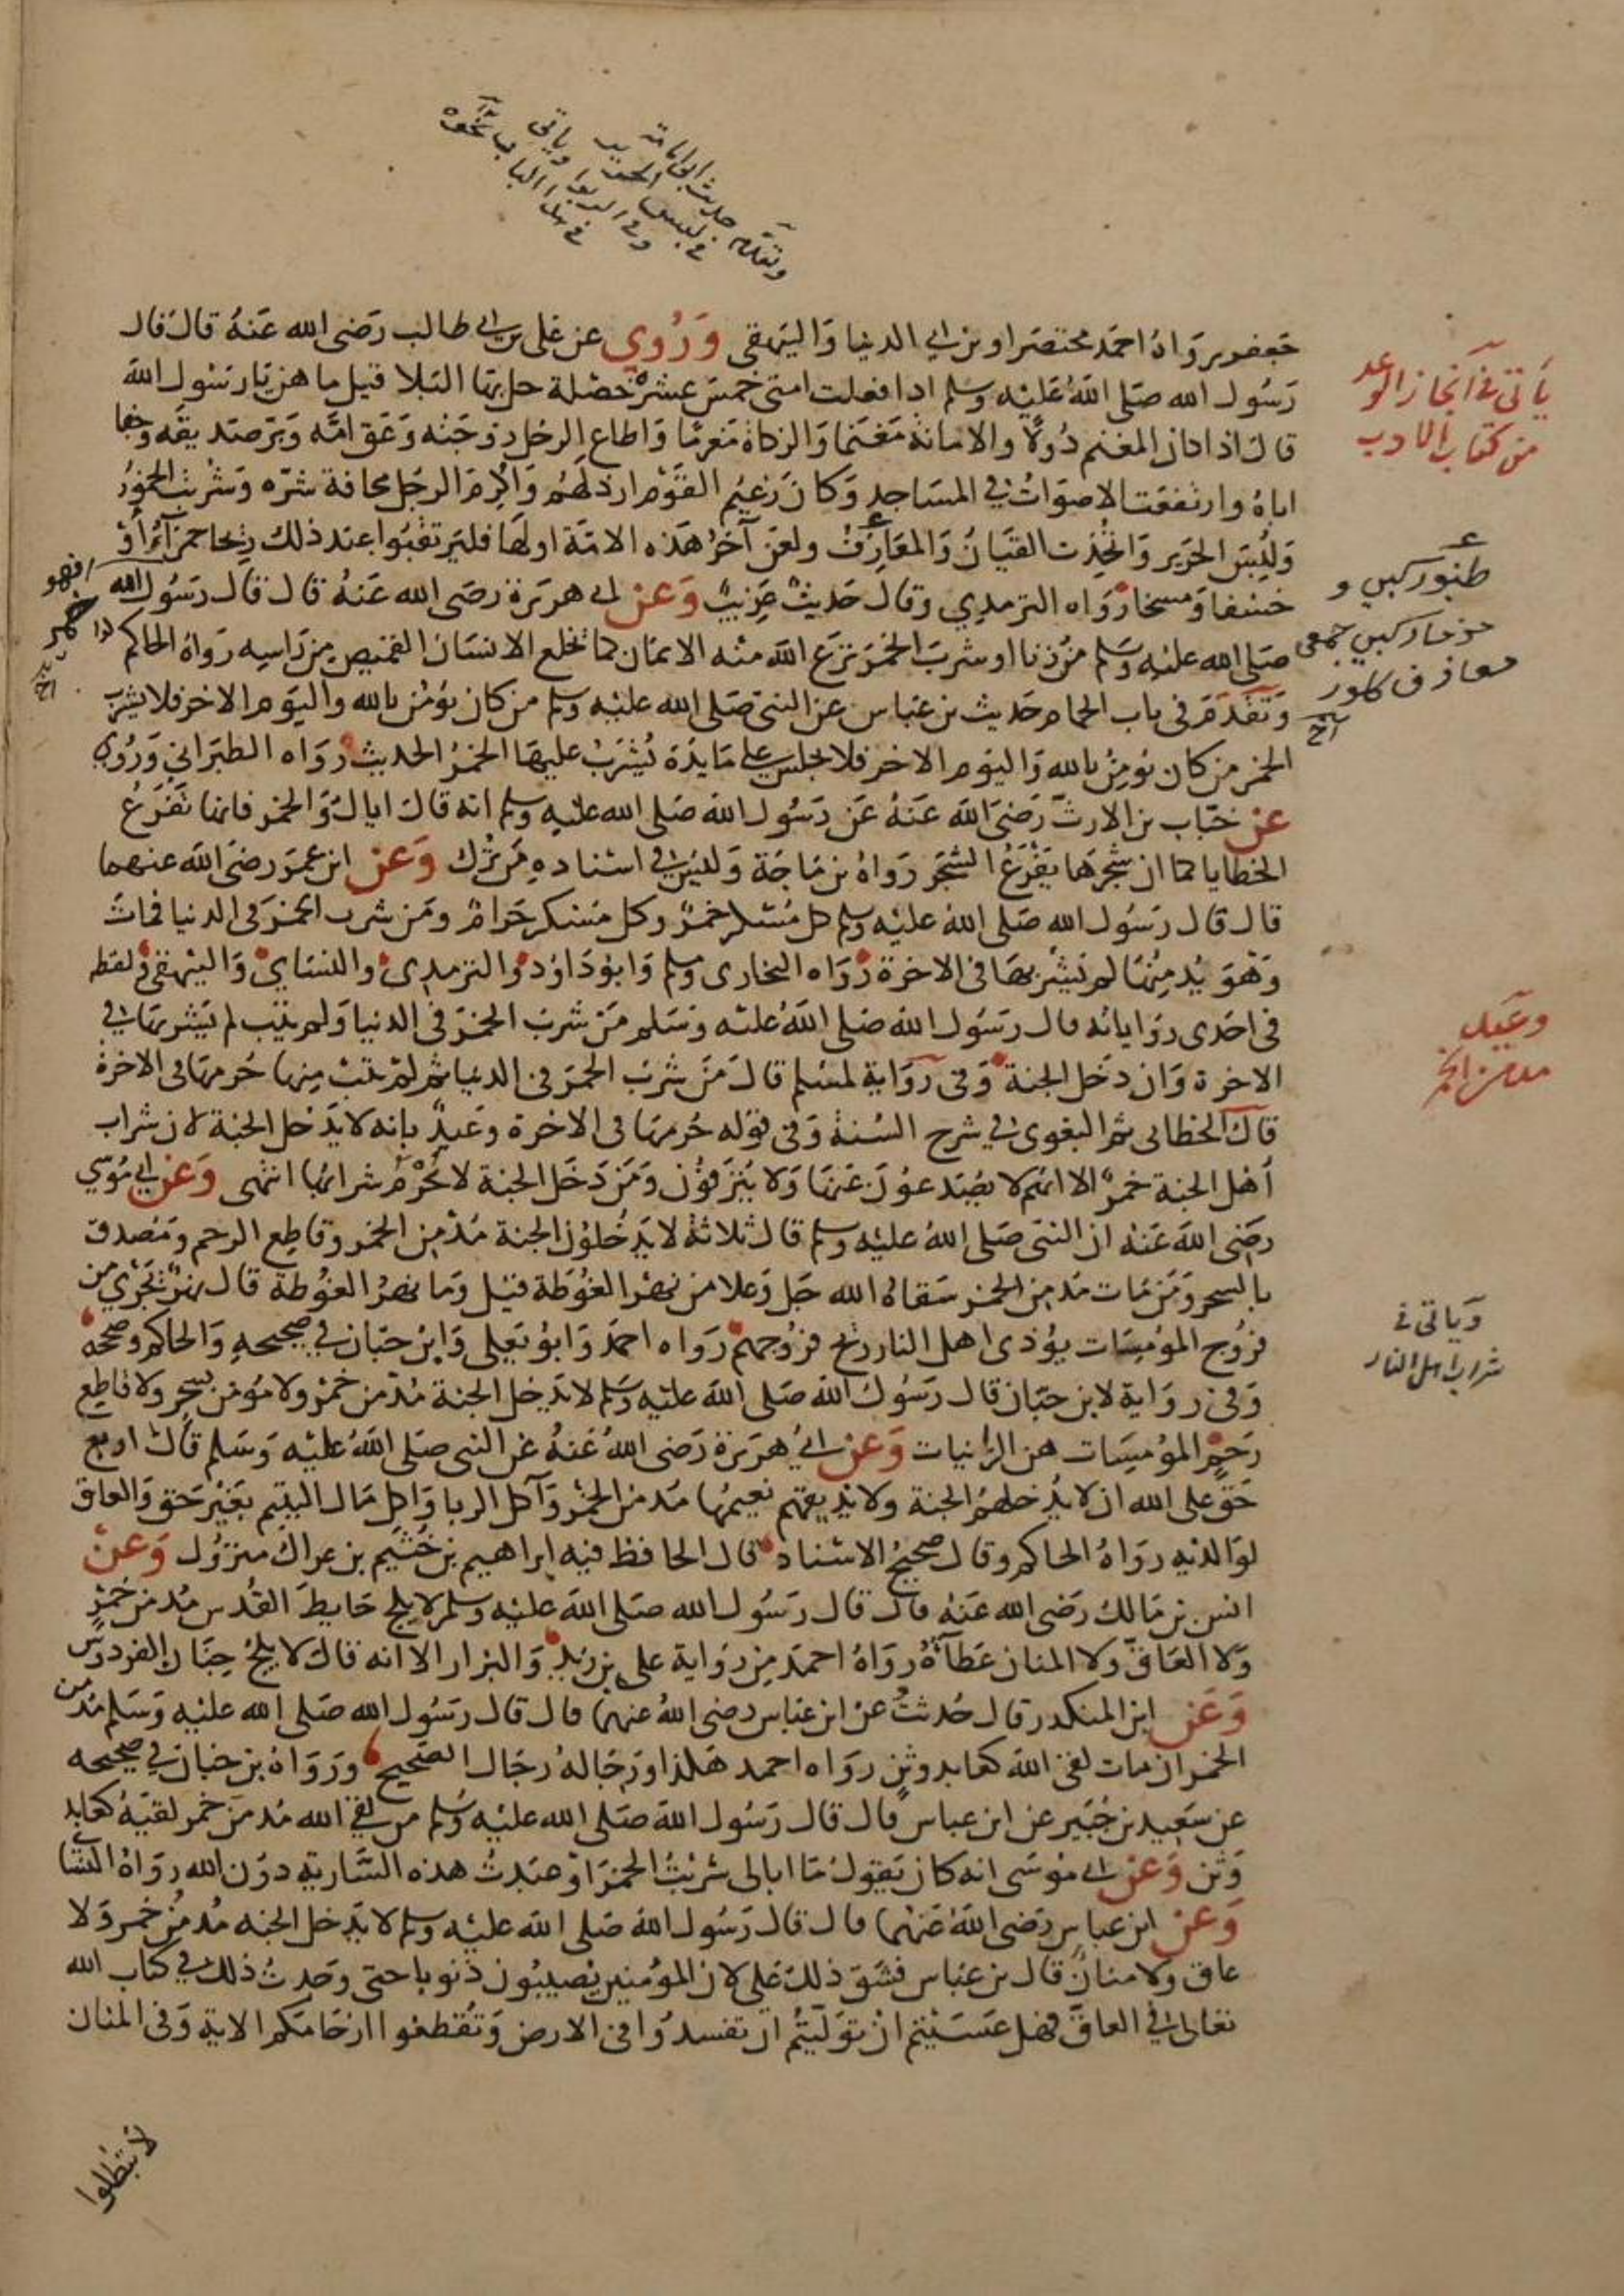 وتقدم حديث ابي امامة
في لبس الحرير وياتي
وفي الربوا
في هذا الباب نحوه
جعفر رواه احمد مختصرا وبن ابي الدنيا والبيهقي وروي عن علي بن ابي طالب رضي الله عنه قال قال
رسول الله صلى الله عليه وسلم اذا فعلت امتي خمس عشرة خصلة حل بها البلا قيل ما هن يا رسول الله
قال اذا كان المغنم دولا والامانة مغنما والزكاة مغرما واطاع الرجل زوجته وعق امه وبر صديقه وجفا
اباه وارتفعت الاصوات في المساجد وكان زعيم القوم ارذلهم واكرم الرجل مخافة شره وشربت الخمور
ولبس الحرير واتخذت القيان والمعازف ولعن آخر هذه الامة اولها فليرتقبوا عند ذلك ريحا حمراء او
خسفا ومسخا رواه الترمذي وقال حديث غريب وعن ابي هريرة رضي الله عنه قال قال رسول الله
صلى الله عليه وسلم من زنا او شرب الخمر نزع الله منه الايمان كما يخلع الانسان القميص من راسه رواه الحاكم
وتقدم في باب الحمام حديث بن عباس عن النبي صلى الله عليه وسلم من كان يؤمن بالله واليوم الاخر فلا يشرب
الخمر من كان يؤمن بالله واليوم الاخر فلا يجلس على مايدة يشرب عليها الخمر الحديث رواه الطبراني وروي
عن خباب بن الارت رضي الله عنه عن رسول الله صلى الله عليه وسلم انه قال اياك والخمر فانها تفرع
الخطايا كما ان شجرها يفرع الشجر رواه بن ماجة وليس في اسناده من ترك وعن ابن عمر رضي الله عنهما
قال قال رسول الله صلى الله عليه وسلم كل مسكر خمر وكل مسكر حرام ومن شرب الخمر في الدنيا فمات
وهو يدمنها لم يشربها في الاخرة رواه البخاري ومسلم وابو داود والترمذي والنساي والبيهقي ولفظه
في احدى رواياته قال رسول الله صلى الله عليه وسلم من شرب الخمر في الدنيا ولم يتب لم يشربها في
الاخرة وان دخل الجنة وفي رواية لمسلم قال من شرب الخمر في الدنيا ثم لم يتب منها حرمها في الاخرة
قال الخطابي ثم البغوي في شرح السنة وفي قوله حرمها في الاخرة وعيد بانه لا يدخل الجنة لان شراب
اهل الجنة خمر الا انهم لا يصدعون عنها ولا ينزفون ومن دخل الجنة لا يحرم شرابها انتهى وعن ابي موسي
رضي الله عنه ان النبي صلى الله عليه وسلم قال ثلاثة لا يدخلون الجنة مدمن الخمر وقاطع الرحم ومصدق
بالسحر ومن مات مدمن الخمر سقاه الله جل وعلا من نهر الغوطة قيل وما نهر الغوطة قال نهر يجري من
فروج المومسات يؤذي اهل النار ريح فروجهم رواه احمد وابو يعلى وابن حبان في صحيحه والحاكم وصححه
وفي رواية لابن حبان قال رسول الله صلى الله عليه وسلم لا يدخل الجنة مدمن خمر ولا مؤمن بسحر ولا قاطع
رحم المومسات هن الزانيات وعن ابي هريرة رضي الله عنه عن النبي صلى الله عليه وسلم قال اربع
حق على الله ان لا يدخلهم الجنة ولا يذيقهم نعيمها مدمن الخمر وآكل الربا واكل مال اليتيم بغير حق والعاق
لوالديه رواه الحاكم وقال صحيح الاسناد قال الحافظ فيه ابراهيم بن خثيم بن عراك متروك وعن
انس بن مالك رضي الله عنه قال قال رسول الله صلى الله عليه وسلم لا يلج حايط القدس مدمن خمر
ولا العاق ولا المنان عطاه رواه احمد من رواية علي بن زيد والبزار الا انه قال لا يلج جنان الفردوس
وعن ابن المنكدر قال حدثت عن ابن عباس رضي الله عنهما قال قال رسول الله صلى الله عليه وسلم مدمن
الخمر ان مات لقي الله كعابد وثن رواه احمد هكذا ورجاله رجال الصحيح ورواه بن حبان في صحيحه
عن سعيد بن جبير عن ابن عباس قال قال رسول الله صلى الله عليه وسلم من لقي الله مدمن خمر لقيه كعابد
وثن وعن ابي موسى انه كان يقول ما ابالي شربت الخمر او عبدت هذه السارية دون الله رواه النسا
وعن ابن عباس رضي الله عنهما قال قال رسول الله صلى الله عليه وسلم لا يدخل الجنه مدمن خمر ولا
عاق ولا منان قال بن عباس فشق ذلك علي لان المؤمنين يصيبون ذنوبا حتى وجدت ذلك في كتاب الله
تعالى في العاق فهل عسيتم ان توليتم ان تفسدوا في الارض وتقطعوا ارحامكم الاية وفي المنان
لا تبطلوا
ياتي في انجاز الوعد
من كتاب الادب
طنبور كبي و
معازف
وعيد
مدمن الخمر
وياتي في
شراب اهل النار